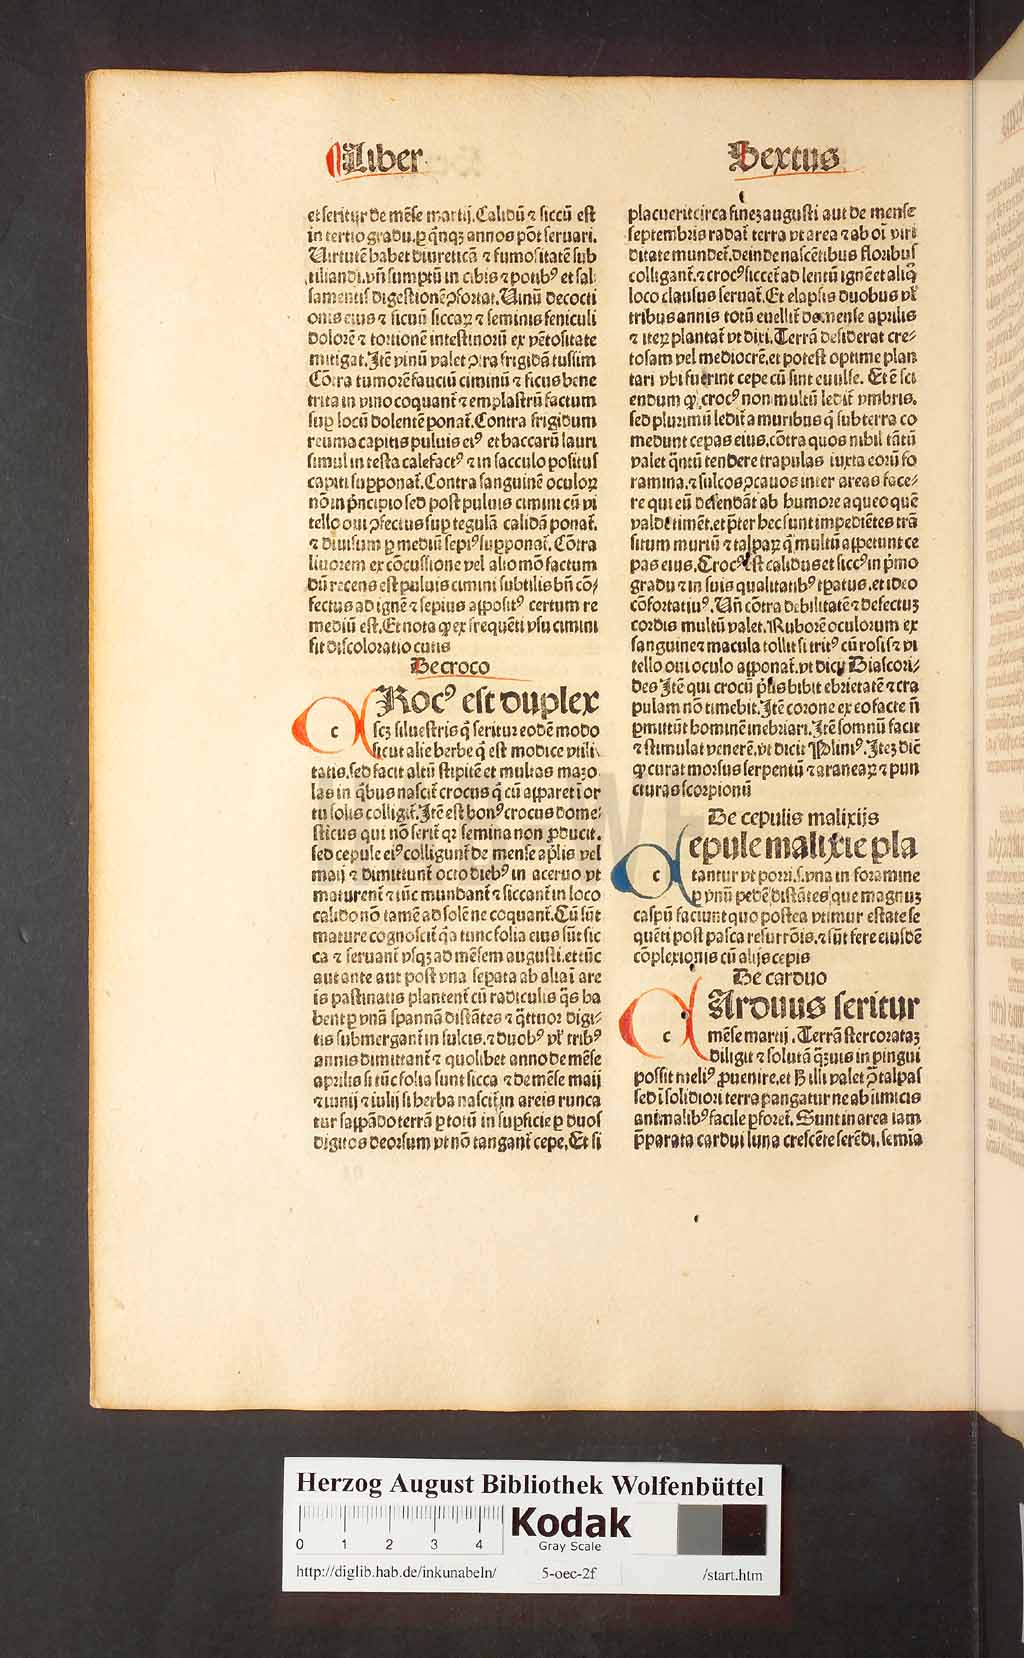 Liber
Sextus
et seritur de mēse martij. Calidū ⁊ siccū est
in tertio gradu. ꝑ qͥnqꝫ annos pōt seruari.
Virtutē habet diureticā ⁊ fumositatē sub
tiliandi. vn̄ sumptū in cibis ⁊ potibꝰ et sal
samentis digestionē ꝯfortat. Uinū decocti
onis eius ⁊ sicuū siccaꝝ ⁊ seminis feniculi
dolorē ⁊ torsionē intestinorū ex vētositate
mitigat. Itē vinū valet ꝯtra frigidā tussim
Cōtra tumorē fauciū ciminū ⁊ ficus bene
trita in vino coquant̄ ⁊ emplastrū factum
suꝑ locū dolentē ponat̄. Contra frigidum
reuma capitis puluis eiꝰ et baccarū lauri
simul in testa calefactꝰ ⁊ in sacculo positus
capiti supponat̄. Contra sanguinē oculoꝝ
nō in pͥncipio sed post puluis cimini cū vi
tello oui ꝯfectus suꝑ tegulā calidā ponat̄.
⁊ diuisum ꝑ mediū sepiꝰ supponat̄. Cōtra
liuorem ex cōcussione vel alio mō factum
dū recens est puluis cimini subtilis bn̄ cō⸗
fectus ad ignē ⁊ sepius appositꝰ certum re
mediū est. Et nota ꝙ ex frequēti vsu cimini
fit discoloratio cutis
De croco
c
Rocꝰ est duplex
scꝫ siluestris qͥ seritur eodē modo
sicut alie herbe qͥ est modice vtili
tatis. sed facit altū stipitē et multas mazo
las in qͥbus nascit̄ crocus qͥ cū apparet ī or
tu solis colligit̄. Itē est bonꝰ crocus dome⸗
sticus qui nō serit̄ qꝛ semina non ꝓducit.
sed cepule eiꝰ colligunt̄ de mense apͥlis vel
maij ⁊ dimittunt̄ octo diebꝰ in aceruo vt
maturent̄ ⁊ tūc mundant̄ ⁊ siccant̄ in loco
calido nō tamē ad solē ne coquant̄. Cū sūt
mature cognoscit̄ qͣ tunc folia eius sūt sic
ca ⁊ seruant̄ vsqꝫ ad mēsem augusti. et tūc
aut ante aut post vna seꝑata ab alia ī are
is pastinatis plantent̄ cū radiculis qͣs ha
bent ꝑ vnā spannā distātes ⁊ qͣttuor digi⸗
tis submergant̄ in sulcis. ⁊ duobꝰ vl̓ tribꝰ
annis dimittant̄ ⁊ quolibet anno de mēse
aprilis si tūc folia sunt sicca ⁊ de mēse maij
⁊ iunij ⁊ iulij si herba nascit̄ in areis runca
tur sappādo terrā ꝑ totū in suꝑficie ꝑ duos
digitos deorsum vt nō tangant̄ cepe. Et si
placuerit circa finēꝫ augusti aut de mense
septembris radat̄ terra vt area ⁊ ab oī viri
ditate mundet̄. deinde nascētibus floribus
colligant̄. ⁊ crocꝰ siccet̄ ad lentū ignē et aliqͦ
loco clausus seruat̄. Et elapsis duobus vl̓
tribus annis totū euellit̄ de mense aprilis
⁊ iteꝝ plantat̄ vt dixi. Terrā desiderat cre⸗
tosam vel mediocrē. et potest optime plan
tari vbi fuerint cepe cū sint euulse. Et ē sci
endum ꝙ crocꝰ non multū ledit̄ vmbris.
sed plurimū ledit̄ a muribus qͥ sub terra co
medunt cepas eius. cōtra quos nihil tātū
valet qͣntū tendere trapulas iuxta eorū fo
ramina. ⁊ sulcos ꝯcauos inter areas face⸗
re qui eū defendāt ab humore aqueo quē
valde timēt. et p̄ter hec sunt impediētes trā
situm muriū ⁊ talpaꝝ qͥ multū appetunt ce
pas eius. Crocꝰ est calidus et siccꝰ in pͥmo
gradu ⁊ in suis qualitatibꝰ tꝑatus. et ideo
cōfortatiuꝰ. Un̄ cōtra debilitatē ⁊ defectuꝫ
cordis multū valet. Ruborē oculorum ex
sanguine ⁊ macula tollit si tritꝰ cū rosis ⁊ vi
tello oui oculo apponat̄. vt dicit Diascori⸗
des Itē qui crocū pͥus bibit ebrietatē ⁊ cra
pulam nō timebit. Itē corone ex eo facte n̄
ꝑmittūt hominē inebriari. Itē somnū facit
⁊ stimulat venerē. vt dicit Pliniꝰ. Iteꝫ dīc
ꝙ curat morsus serpentū ⁊ araneaꝝ ⁊ pun
cturas scorpionū
De cepulis malixijs
c
epule malixie pla
tantur vt porri. s. vna in foramine
ꝑ vnū pedē distātes que magnuꝫ
caspū faciunt quo postea vtimur estate se
quēti post pasca resurrōis. ⁊ sūt fere eiusdē
cōplexionis cū alijs cepis
De carduo
c
Arduus seritur
mēse martij. Terrā stercorataꝫ
diligit ⁊ solutā qͣꝫuis in pingui
possit meliꝰ ꝓuenire. et ꝫ illi valet ꝯtra talpas
sed ī solidiori terra pangatur ne ab inimicis
animalibꝰ facile ꝑforet̄. Sunt in area iam
p̄parata cardui luna crescēte serēdi. semīa
Herzog August Bibliothek Wolfenbüttel
0 1 2 3 4
Kodak
Gray Scale
http://diglib.hab.de/inkunabeln/ 5-oec-2f /start.htm